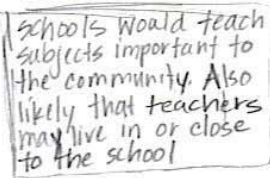 schools would teach
subjects important to
the community. Also
likely that teachers
may live in or close
to the school